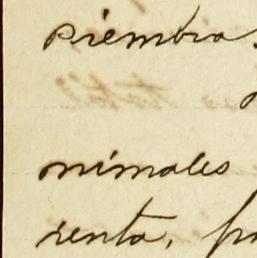 piembra
nimales
renta,